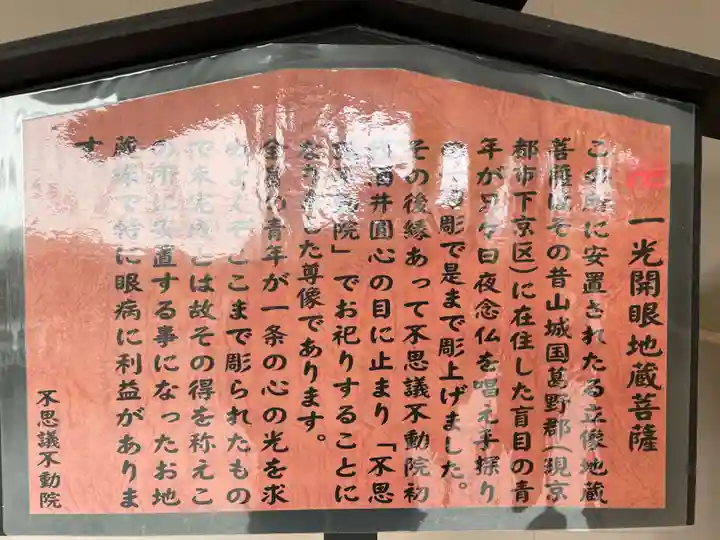 一光開眼地蔵菩薩
この所に安置されたる立像地蔵
菩薩はその昔山城国葛野郡(現京
都市下京区)に在住した盲目の青
年が只々日夜念仏を唱え手探り
彫で是まで彫上げました。
その後縁あって不思議不動院初
酒井圓心の目に止まり「不思
院」でお祀りすることに
なりました尊像であります。
全盲の青年が一条の心の光を求
めよくぞここまで彫られたもの
で未完成とは故その得を称えこ
の所に安置する事になったお地
蔵様で特に眼病に利益がありま
す
不思議不動院